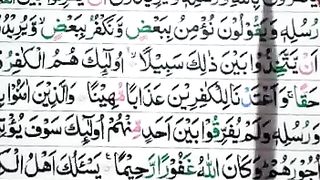 رُسُلِهٖ وَيَقُوْلُوْنَ نُؤْمِنُ بِبَعْضٍ وَّنَكْفُرُ بِبَعْضٍ وَّيُرِيْدُ
اَنْ يَّتَّخِذُوْا بَيْنَ ذٰلِكَ سَبِيْلًا اُولٰٓئِكَ هُمُ الْكٰفِرُ
حَقًّا وَاَعْتَدْنَا لِلْكٰفِرِيْنَ عَذَابًا مُّهِيْنًا وَالَّذِيْنَ اٰمَنُوْا بِا
وَرُسُلِهٖ وَلَمْ يُفَرِّقُوْا بَيْنَ اَحَدٍ مِّنْهُمْ اُولٰٓئِكَ سَوْفَ يُؤْتِ
اُجُوْرَهُمْ وَكَانَ اللّٰهُ غَفُوْرًا رَّحِيْمًا يَسْـَٔلُكَ اَهْلُ الْكِ